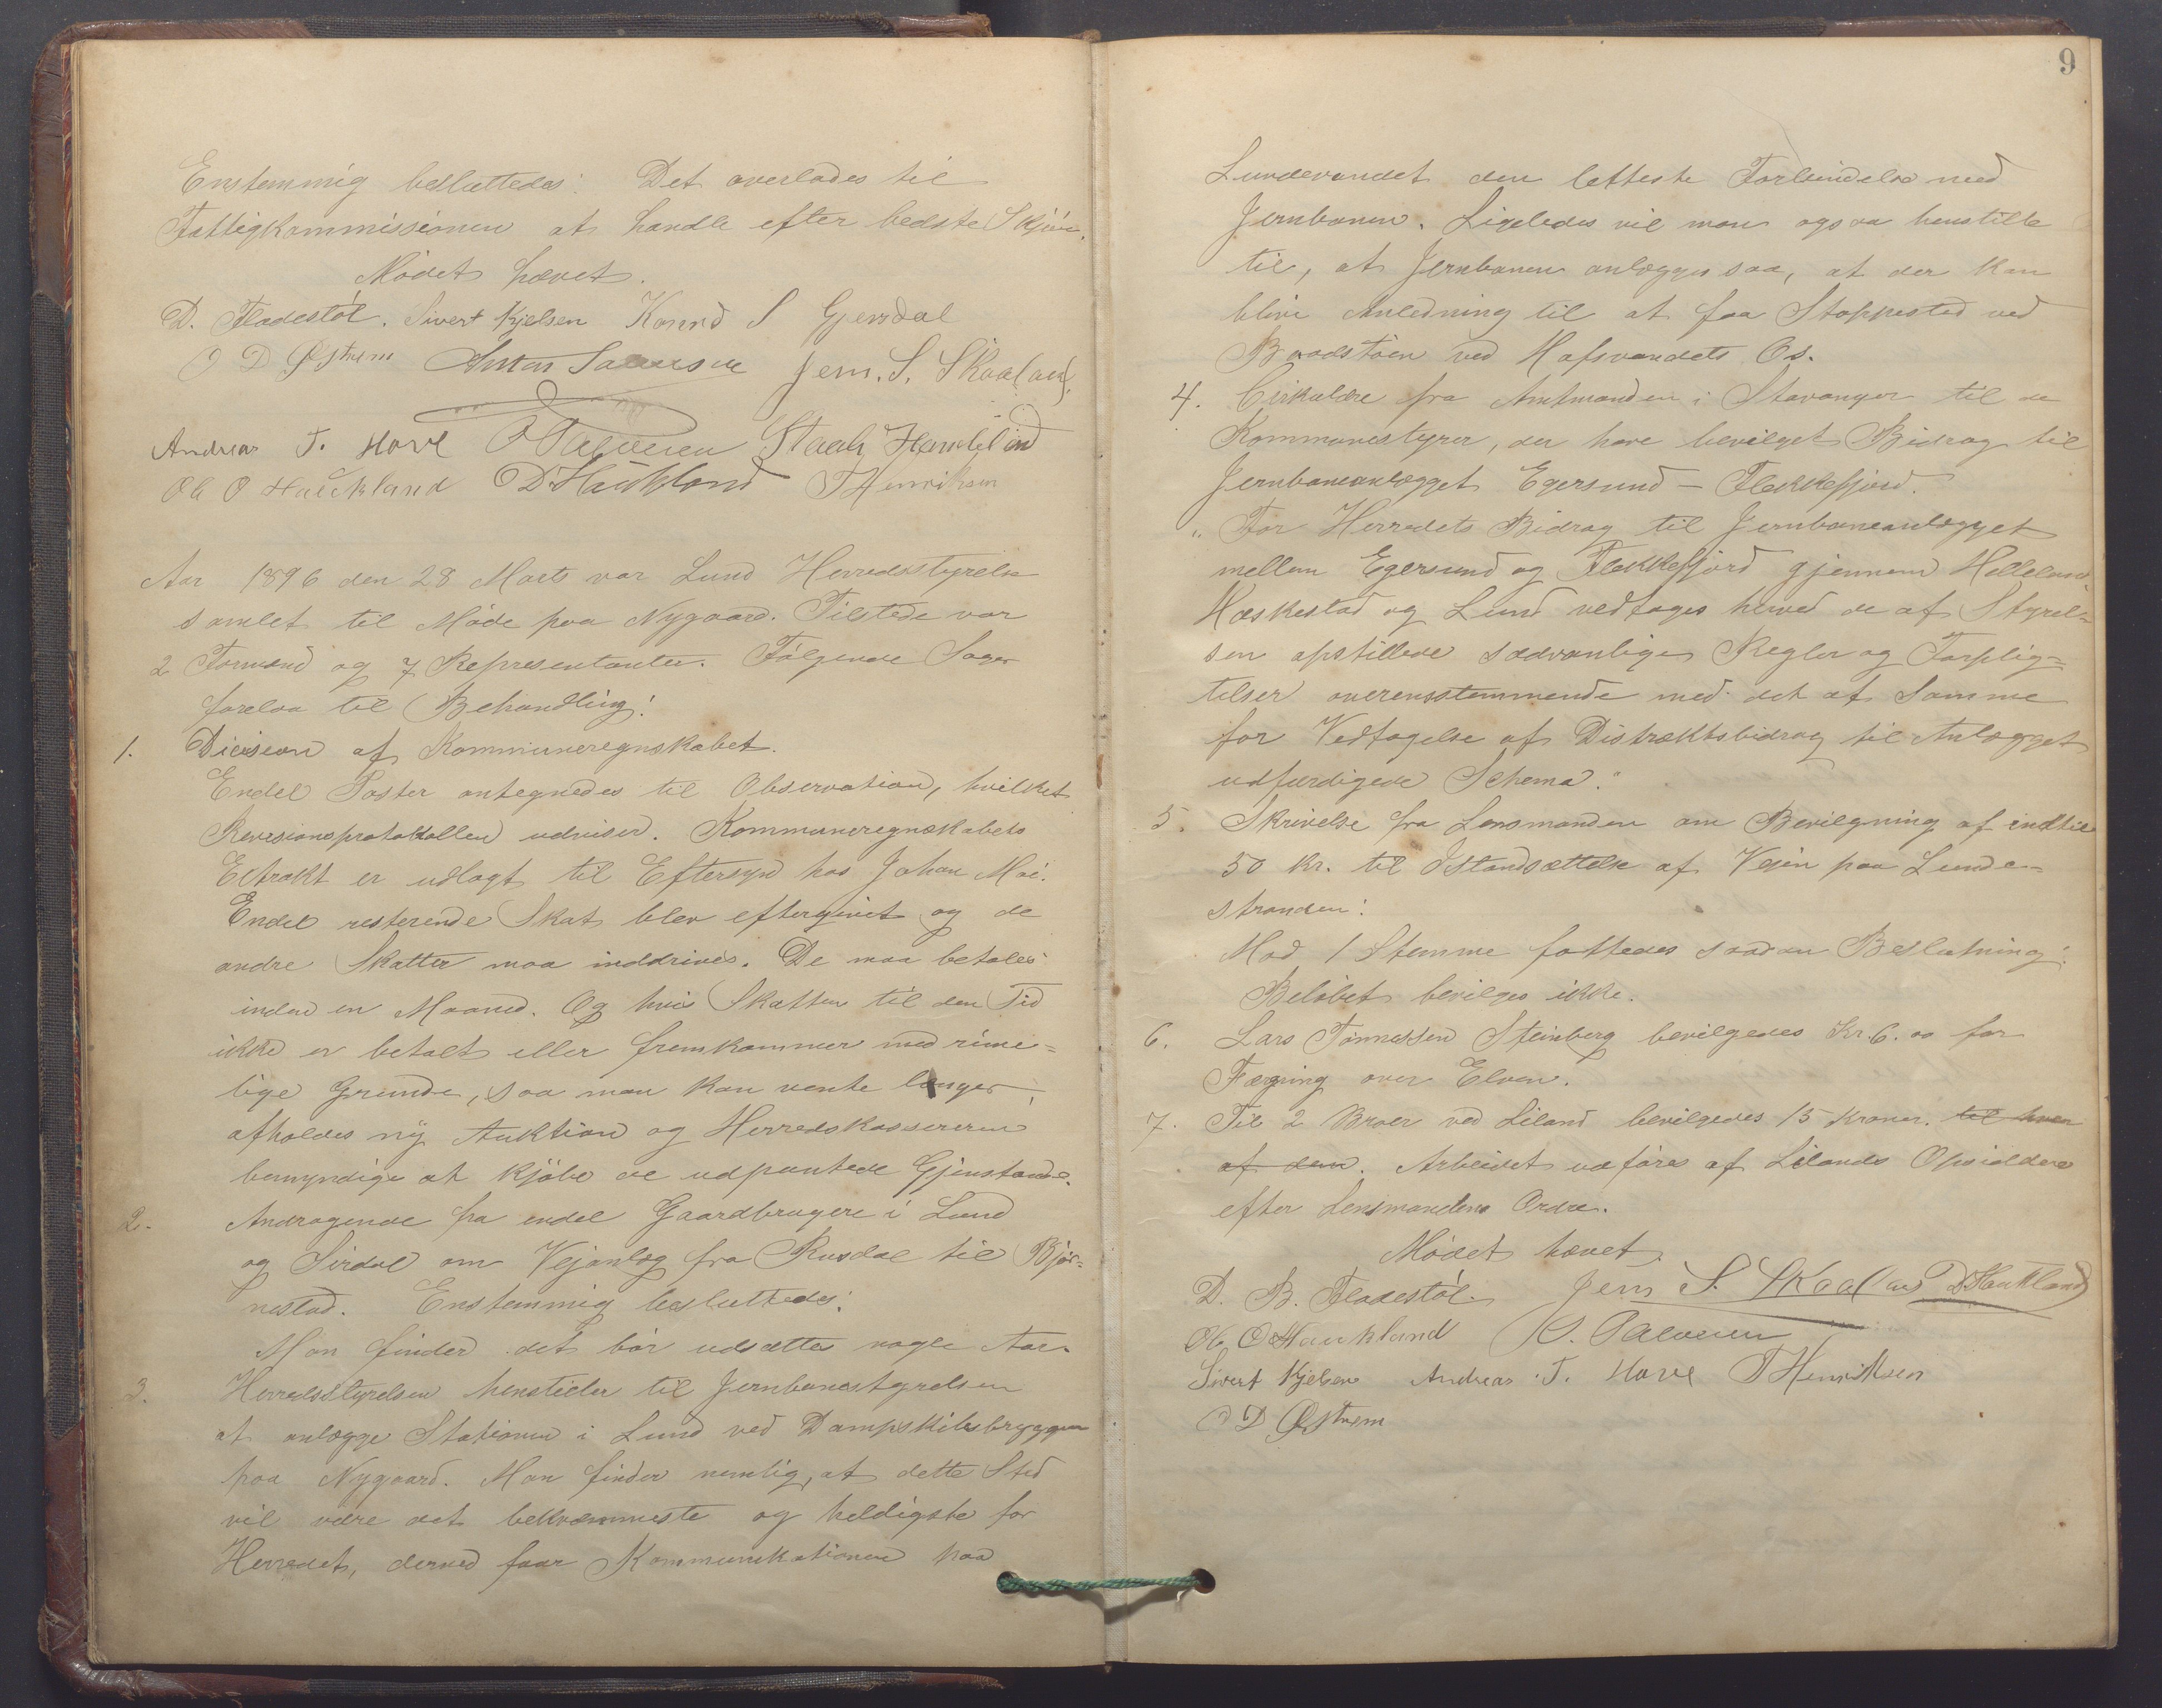 Enstemmig besluttedes: Det overlades til
Fattigkommissionen at handle efter bedste Skjøn.
Mødet hævet.
D. Fladestøl. Sivert Kjelsen Konrad S Gjersdal
O D Østrem Anton Jens. S. Skaaland
Andreas T. Hove Haukland
Ole O Hauckland D Haukland T Henriksen
Aar 1896 den 28 Marts var Lund Herredsstyrelse
samlet til Møde paa Nygaard. Tilstede var
2 Formænd og 7 Repræsentanter. Følgende Sager
forelaa til Behandling:
1. Decision af Kommuneregnskabet.
Endel Poster antegnedes til Observation, hvilket
Revisionsprotokollen udviser. Kommuneregnskabets
Extrakt er udlagt til Eftersyn hos Johan Moi.
Endel resterende Skat blev eftergivet og de
andre Skatter maa inddrives. De maa betales
inden en Maaned. Og hvis Skatten til den Tid
ikke er betalt eller fremkommer med rime=
lige Grunde, saa man kan vente længer,
afholdes ny Auktion og Herredskassereren
bemyndiges at kjøbe de udpantede Gjenstande.
2. Andragende fra endel Gaardbrugere i Lund
og Sirdal om Vejanlæg fra Rusdal til Bjør=
nestad. Enstemmig besluttedes:
Man finder det bør udsættes nogle Aar.
3. Herredsstyrelsen henstiller til Jernbanestyrelsen
at anlægge Stationen i Lund ved Dampskibsbryggen
paa Nygaard. Man finder nemlig, at dette Sted
vil være det bekvæmmeste og heldigste for
Herredet, derved faar Kommunikationen paa
9
Lundevandet den letteste Forbindelse med
Jernbanen. Ligeledes vil man ogsaa henstille
til, at Jernbanen anlægges saa, at der kan
blive Anledning til at faa Stoppested ved
Baadstøen ved Hafsvandets Os.
4. Cirkulære fra Amtmanden i Stavanger til de
Kommunestyrer, der have bevilget Bidrag til
Jernbaneanlægget Egersund – Flekkefjord.
"For Herredets Bidrag til Jernbaneanlægget
mellem Egersund og Flekkefjord gjennem Helleland
Heskestad og Lund vedtages herved de af Styrel=
sen opstillede sædvanlige Regler og Forplig=
telser overensstemmende med det af samme
for Vedtagelse af Distriktsbidrag til Anlægget
udfærdigede Schema."
5. Skrivelse fra Lensmanden om Bevilgning af indtil
50 Kr. til Istandsættelse af Vejen paa Lunde=
stranden:
Mod 1 Stemme fattedes saadan Beslutning:
Beløbet bevilges ikke.
6. Lars Tønnessen Steinberg bevilgedes Kr. 6.00 for
Færging over Elven.
7. Til 2 Broer ved Liland bevilgedes 15 Kroner. til hver
af dem. Arbeidet udføres af Lilands Opsiddere
efter Lensmandens Ordre.
Mødet hævet.
D. B. Fladestøl. Jens S. Skaaland D Haukland
Ole O Haukland
Sivert Kjelsen Andreas T. Hove T Henriksen
O D Østrem